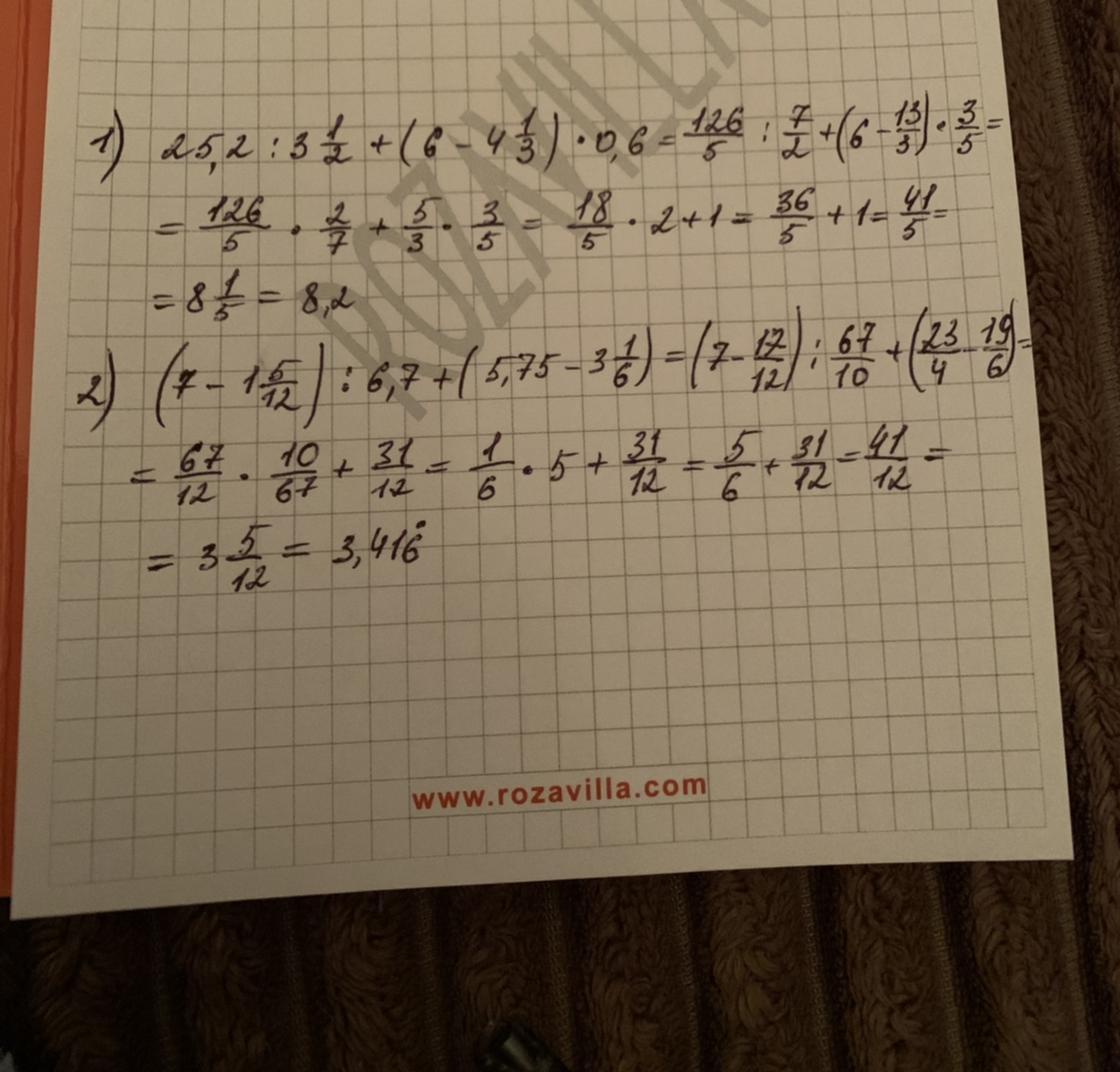 1) 25,2 : 3 1/2 + (6 - 4 1/3) · 0,6 = 126/5 : 7/2 + (6 - 13/3) · 3/5 =
= 126/5 · 2/7 + 5/3 · 3/5 = 18/5 · 2 + 1 = 36/5 + 1 = 41/5 =
= 8 1/5 = 8,2
2) (7 - 1 5/12) : 6,7 + (5,75 - 3 1/6) = (7 - 17/12) : 67/10 + (23/4 - 19/6) =
= 67/12 · 10/67 + 31/12 = 1/6 · 5 + 31/12 = 5/6 + 31/12 = 41/12 =
= 3 5/12 = 3,416̇
ROZAVILLA
www.rozavilla.com